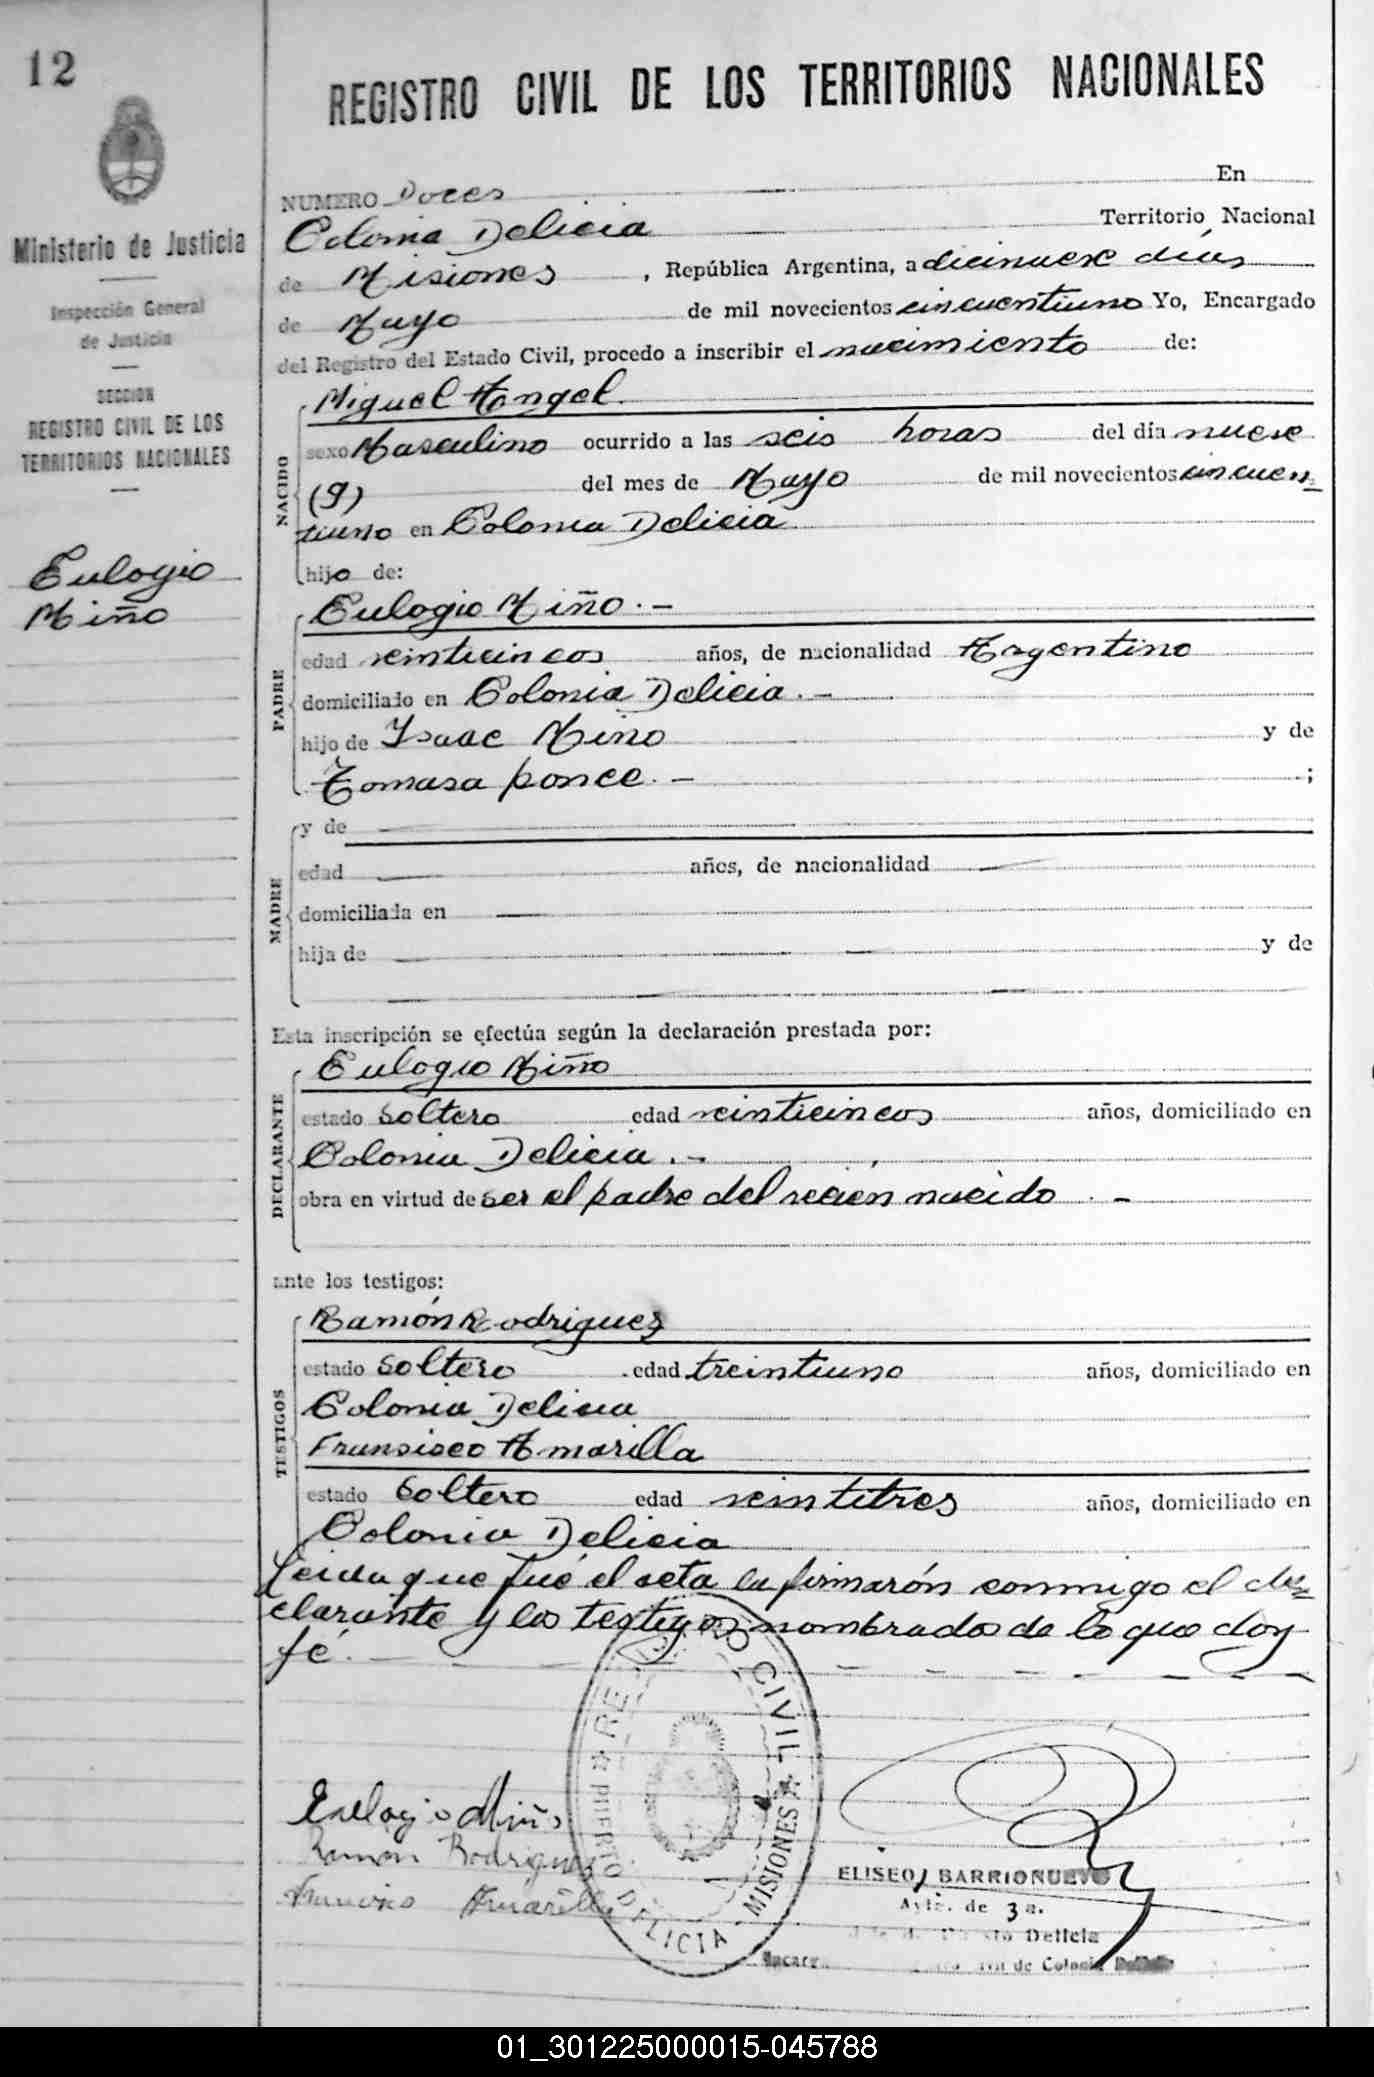 12
REGISTRO CIVIL DE LOS TERRITORIOS NACIONALES
Ministerio de Justicia
Inspección General
de Justicia
SECCION
REGISTRO CIVIL DE LOS
TERRITORIOS NACIONALES
Eulogio
Miño
NUMERO Doces En
Colonia Delicia Territorio Nacional
de Misiones, República Argentina, a dicinueve días
de Mayo de mil novecientos cincuentiuno Yo, Encargado
del Registro del Estado Civil, procedo a inscribir el nacimiento de:
Miguel Angel.
NACIDO
sexo Masculino ocurrido a las seis horas del día nueve
(9) del mes de Mayo de mil novecientos cincuen=
tiuno en Colonia Delicia
hijo de:
PADRE
Eulogio Miño.-
edad veinticincos años, de nacionalidad Argentino
domiciliado en Colonia Delicia.-
hijo de Isaac Miño y de
Tomasa ponce.- ;
MADRE
y de
edad años, de nacionalidad
domiciliada en
hija de y de
Esta inscripción se efectúa según la declaración prestada por:
DECLARANTE
Eulogio Miño
estado Soltero edad veinticincos años, domiciliado en
Colonia Delicia.-
obra en virtud de ser el padre del recien nacido.-
ante los testigos:
TESTIGOS
Ramón Rodriguez
estado Soltero edad treintiuno años, domiciliado en
Colonia Delicia
Fransisco Amarilla
estado Soltero edad veintitres años, domiciliado en
Colonia Delicia
Leida que fué el acta la firmarón conmigo el de=
clarante y los testigos nombrados de lo que doy
fé.
REGISTRO CIVIL
PUERTO DELICIA - MISIONES
Eulogio Miño
Ramón Rodriguez
Francisco Amarilla
ELISEO BARRIONUEVO
Ayte. de 3a.
Delicia
de Colonia
01_301225000015-045788